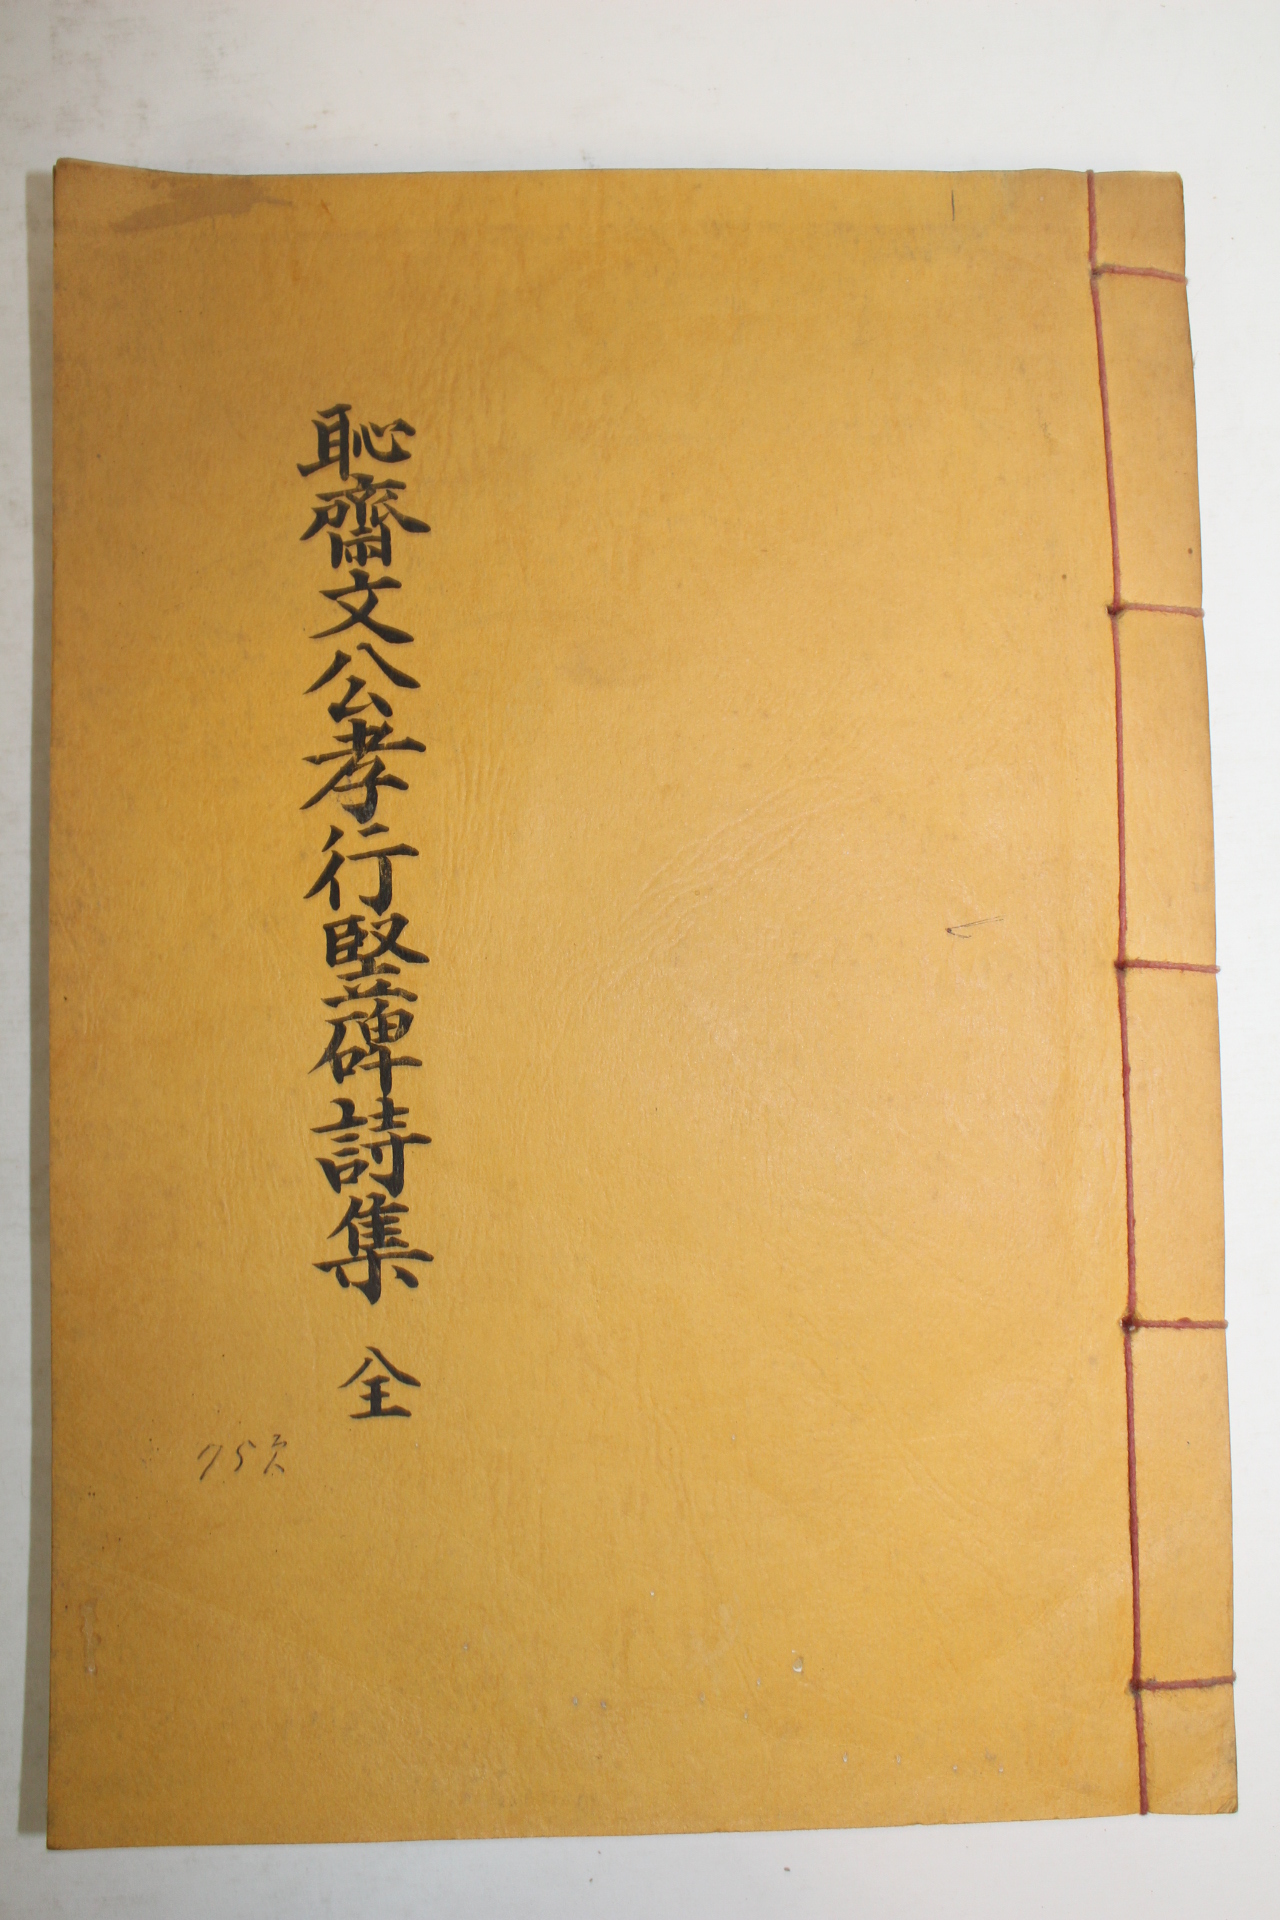 恥齋文公孝行竪碑詩集 全
75次